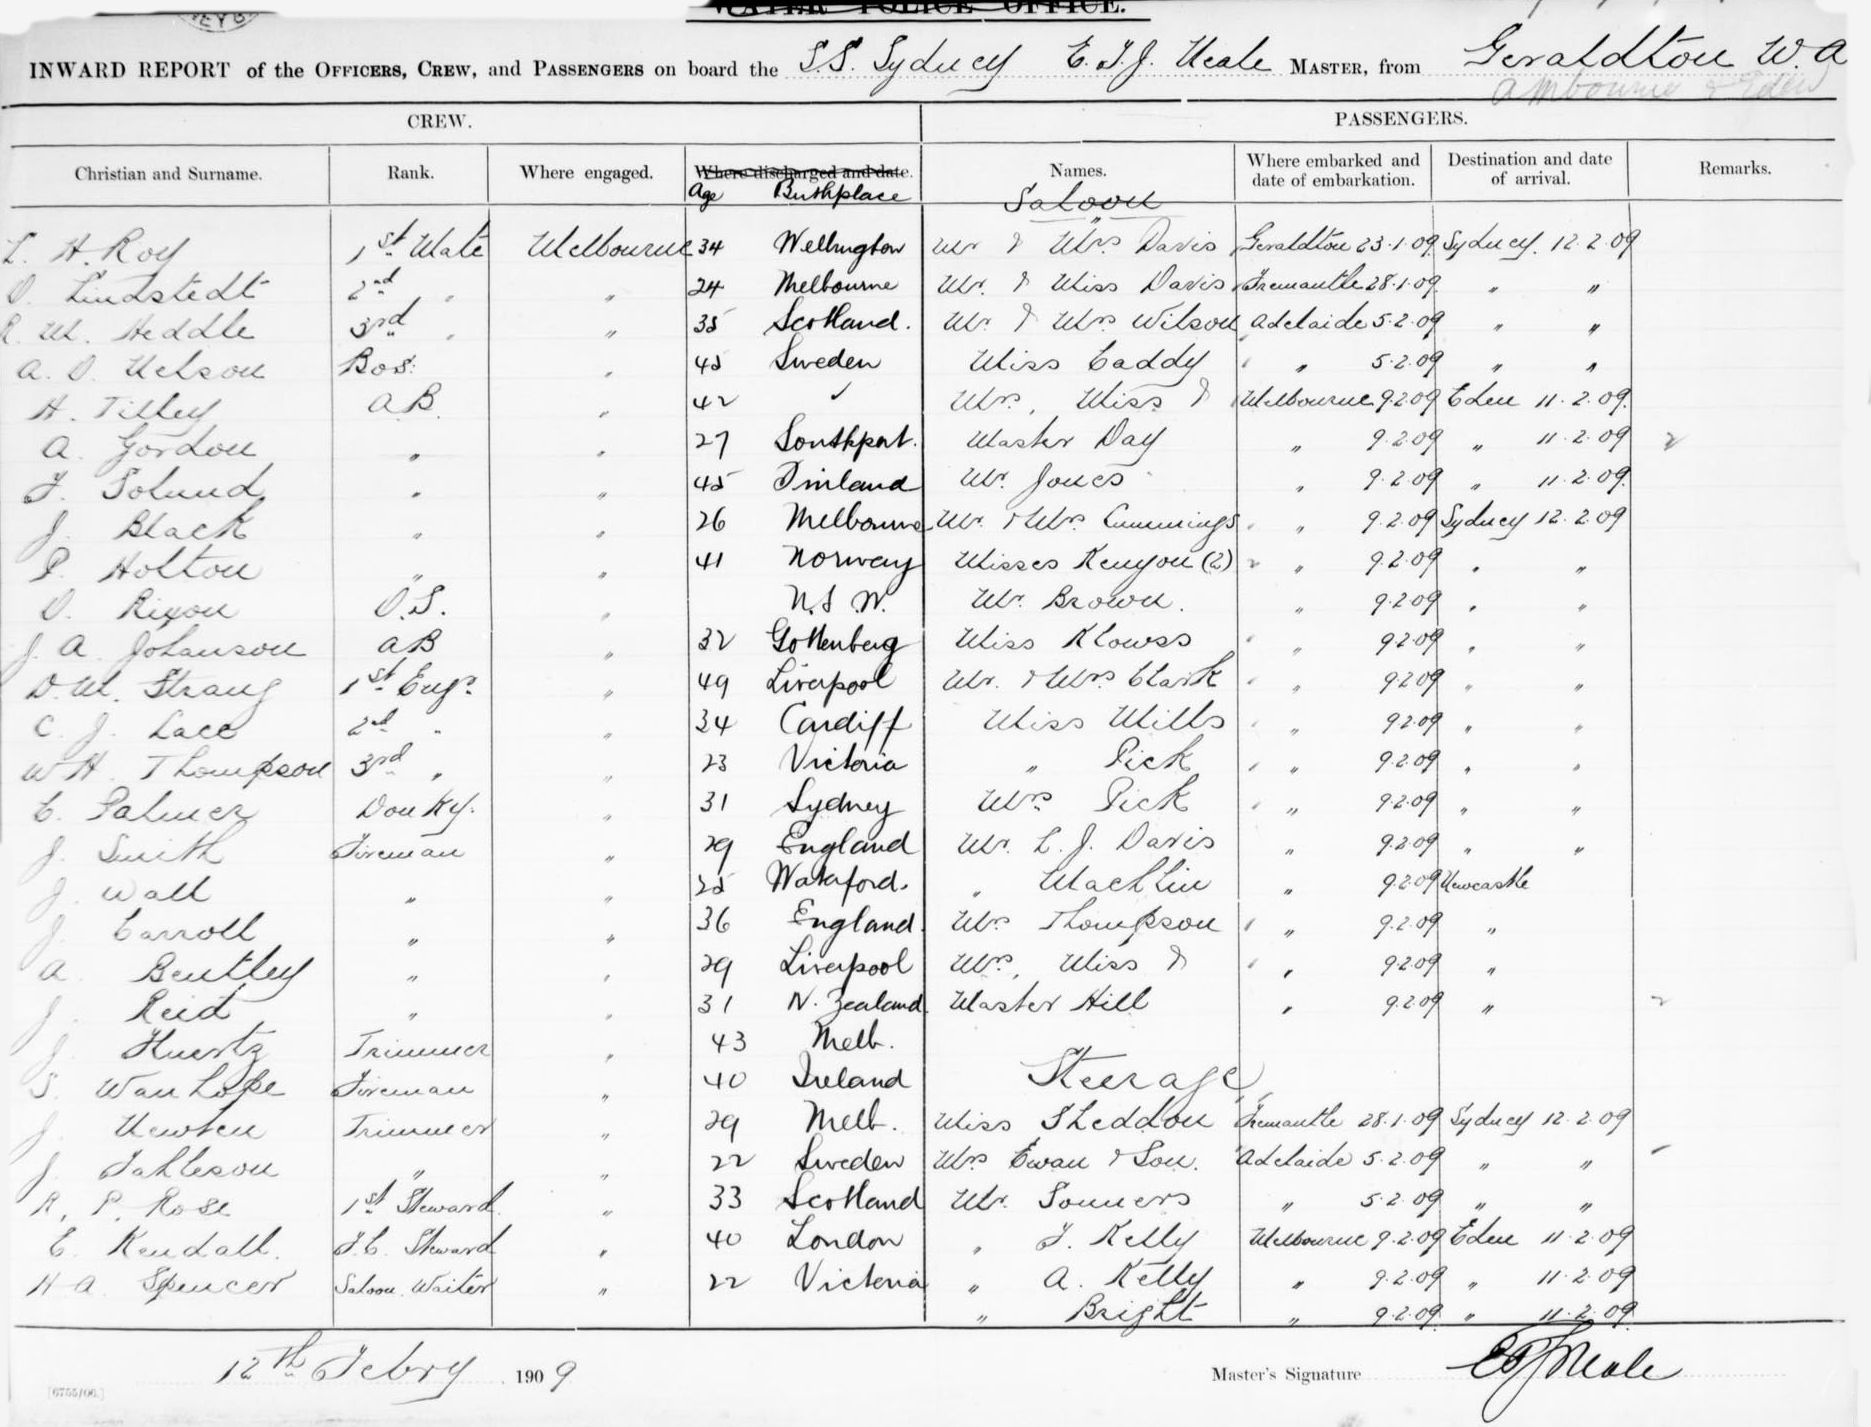 WATER POLICE OFFICE.
INWARD REPORT of the OFFICERS, CREW, and PASSENGERS on board the S.S. Sydney E. T. J. Neale MASTER, from Geraldton W.A
Melbourne & Eden
CREW. PASSENGERS.
Christian and Surname. Rank. Where engaged. Where discharged and date. Names. Where embarked and date of embarkation. Destination and date of arrival. Remarks.
Age Birthplace Saloon
L. H. Roy 1st Mate Melbourne 34 Wellington Mr & Mrs Davis Geraldton 23.1.09 Sydney 12.2.09
O. Lindstedt 2nd " " 24 Melbourne Mr. & Miss Davis Fremantle 28.1.09 " "
R. M. Heddle 3rd " " 35 Scotland. Mr & Mrs Wilson Adelaide 5.2.09 " "
A. O. Nelson Bos: " 45 Sweden Miss Caddy " 5.2.09 " "
H. Tilley AB. " 42 ✓ Mrs, Miss & Melbourne 9.2.09 Eden 11.2.09.
A. Gordon " " 27 Southport. Master Day " 9.2.09 " 11.2.09
F. Solund " " 45 Finland Mr. Jones " 9.2.09 " 11.2.09.
J. Black " " 26 Melbourne Mr. & Mrs Cummings " 9.2.09 Sydney 12.2.09
P. Holton " " 41 Norway Misses Kenyon (2) " 9.2.09 " "
O. Rixon O.S. " N.S.W. Mr. Brown. " 9.2.09 " "
J. A. Johanson AB " 32 Gottenberg Miss Klowss " 9.2.09 " "
D. M. Strang 1st Engr " 49 Liverpool Mr. & Mrs Clark " 9.2.09 " "
C. J. Lace 2nd " " 34 Cardiff Miss Mills " 9.2.09 " "
W H. Thompson 3rd " " 23 Victoria " Pick " 9.2.09 " "
E. Palmer Donky. " 31 Sydney Mrs Pick " 9.2.09 " "
J. Smith Fireman " 29 England Mr. L. J. Davis " 9.2.09 " "
J. Wall " " 25 Waterford. " Macklin " 9.2.09 Newcastle
J. Carroll " " 36 England. Mrs Thompson " 9.2.09 "
A. Bentley " " 29 Liverpool Mrs, Miss & " 9.2.09 "
J. Reid " " 31 N. Zealand Master Hill " 9.2.09 "
J. Huertz Trimmer " 43 Melb.
S. Wanhope Fireman " 40 Ireland Steerage
J. Newten Trimmer " 29 Melb. Miss Sheddon Fremantle 28.1.09 Sydney 12.2.09
J. Tahleson " " 22 Sweden Mrs Ewan & Son. Adelaide 5.2.09 " "
R. P. Rose 1st Steward " 33 Scotland Mr. Sonners " 5.2.09 " "
E. Kendall. F.C. Steward " 40 London " F. Kelly Melbourne 9.2.09 Eden 11.2.09
H. A. Spencer Saloon Waiter " 22 Victoria " A. Kelly " 9.2.09 " 11.2.09
" Bright " 9.2.09. " 11.2.09.
12th Febry 1909 Master's Signature E T J Neale
[6755/06.]